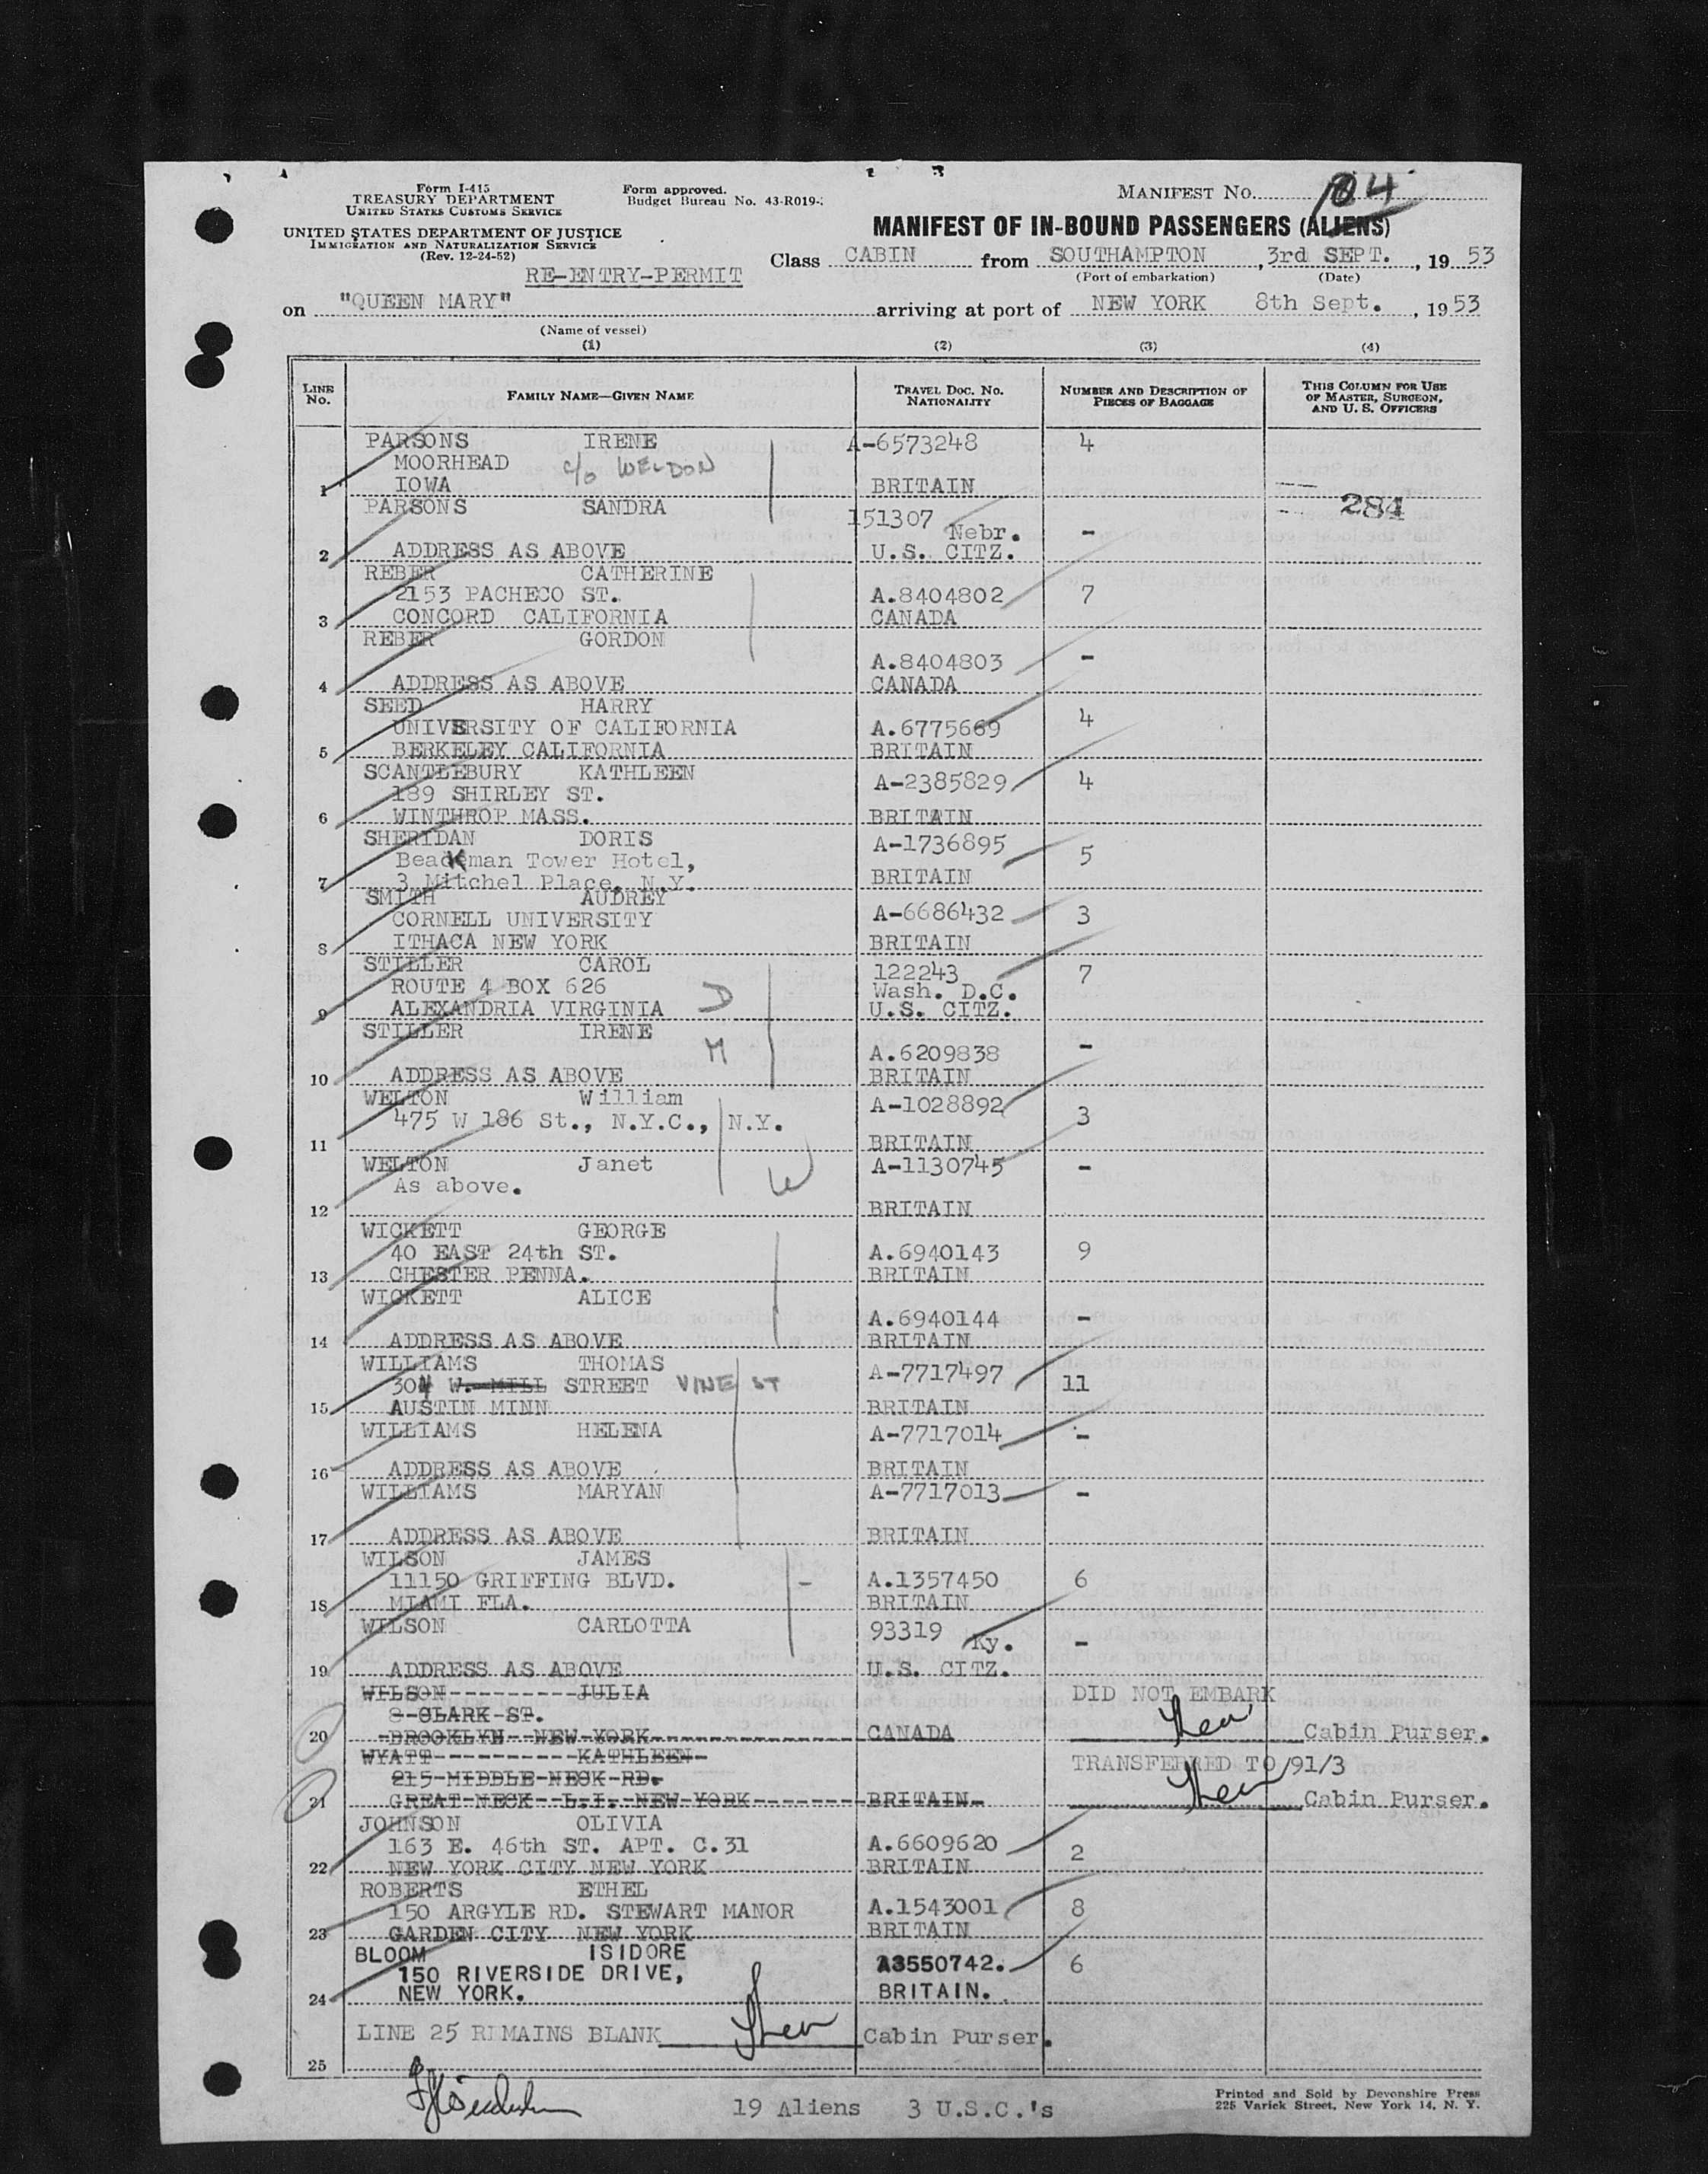 Form I-415
TREASURY DEPARTMENT
UNITED STATES CUSTOMS SERVICE
UNITED STATES DEPARTMENT OF JUSTICE
IMMIGRATION AND NATURALIZATION SERVICE
(Rev. 12-24-52)
Form approved.
Budget Bureau No. 43-R019-
MANIFEST NO. 84
MANIFEST OF IN-BOUND PASSENGERS (ALIENS)
RE-ENTRY-PERMIT
Class CABIN from SOUTHAMPTON, 3rd SEPT., 1953
(Port of embarkation) (Date)
on "QUEEN MARY" arriving at port of NEW YORK 8th Sept., 1953
(Name of vessel)
(1) (2) (3) (4)
LINE No. FAMILY NAME—GIVEN NAME TRAVEL DOC. NO. NATIONALITY NUMBER AND DESCRIPTION OF PIECES OF BAGGAGE THIS COLUMN FOR USE OF MASTER, SURGEON, AND U. S. OFFICERS
PARSONS IRENE A-6573248 4
MOORHEAD c/o WELDON
1 IOWA BRITAIN
PARSONS SANDRA 151307 284
Nebr. -
2 ADDRESS AS ABOVE U.S. CITZ.
REBER CATHERINE
2153 PACHECO ST. A.8404802 7
3 CONCORD CALIFORNIA CANADA
REBER GORDON
A.8404803 -
4 ADDRESS AS ABOVE CANADA
SEED HARRY 4
UNIVERSITY OF CALIFORNIA A.6775669
5 BERKELEY CALIFORNIA BRITAIN
SCANTLEBURY KATHLEEN A-2385829 4
189 SHIRLEY ST.
6 WINTHROP MASS. BRITAIN
SHERIDAN DORIS A-1736895
Beadkman Tower Hotel, 5
7 3 Mitchel Place, N.Y. BRITAIN
SMITH AUDREY
CORNELL UNIVERSITY A-6686432 3
8 ITHACA NEW YORK BRITAIN
STILLER CAROL 122243 7
ROUTE 4 BOX 626 D Wash. D.C.
9 ALEXANDRIA VIRGINIA U.S. CITZ.
STILLER IRENE
M A.6209838 -
10 ADDRESS AS ABOVE BRITAIN
WELTON William A-1028892
475 W 186 St., N.Y.C., N.Y. 3
11 BRITAIN
WELTON Janet A-1130745 -
As above. W
12 BRITAIN
WICKETT GEORGE
40 EAST 24th ST. A.6940143 9
13 CHESTER PENNA. BRITAIN
WICKETT ALICE
A.6940144 -
14 ADDRESS AS ABOVE BRITAIN
WILLIAMS THOMAS A-7717497
304 W. MILL STREET VINE ST 11
15 AUSTIN MINN BRITAIN
WILLIAMS HELENA A-7717014 -
16 ADDRESS AS ABOVE BRITAIN
WILLIAMS MARYAN A-7717013 -
17 ADDRESS AS ABOVE BRITAIN
WILSON JAMES
11150 GRIFFING BLVD. - A.1357450 6
18 MIAMI FLA. BRITAIN
WILSON CARLOTTA 93319 Ky. -
19 ADDRESS AS ABOVE U.S. CITZ.
WILSON JULIA DID NOT EMBARK
8 CLARK ST.
20 BROOKLYN NEW YORK CANADA Cabin Purser.
WYATT KATHLEEN TRANSFERRED TO 91/3
215 MIDDLE NECK RD.
21 GREAT NECK L.I. NEW YORK BRITAIN Cabin Purser.
JOHNSON OLIVIA
163 E. 46th ST. APT. C.31 A.6609620 2
22 NEW YORK CITY NEW YORK BRITAIN
ROBERTS ETHEL
150 ARGYLE RD. STEWART MANOR A.1543001 8
23 GARDEN CITY NEW YORK BRITAIN
BLOOM ISIDORE A3550742. 6
150 RIVERSIDE DRIVE,
24 NEW YORK. BRITAIN.
LINE 25 REMAINS BLANK Cabin Purser.
25
19 Aliens 3 U.S.C.'s
Printed and Sold by Devonshire Press
225 Varick Street, New York 14, N. Y.